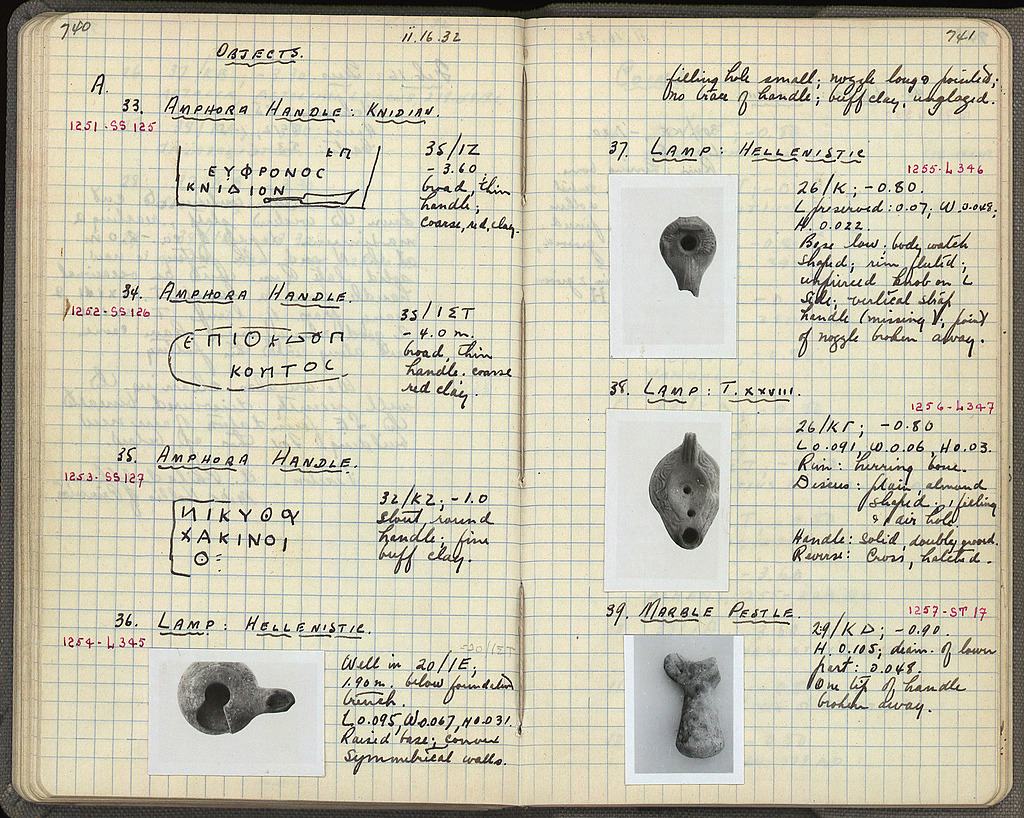 740
ii.16.32
OBJECTS.
A.
33. AMPHORA HANDLE: KNIDIAN.
1251-SS 125
ΕΠ
ΕΥΦΡΟΝΟС
ΚΝΙΔΙΟΝ
35/ΙΖ
- 3.60.
broad, thin
handle;
coarse, red, clay.
34. AMPHORA HANDLE.
1252-SS 126
ΚΟΠΤΟС
35/ΙΣΤ
- 4.0 m.
broad, thin
handle. coarse
red clay.
35. AMPHORA HANDLE.
1253-SS 127
ΝΙΚΥΘΟ
ΧΑΚΙΝΟΙ
Θ
32/ΚΖ; -1.0
stout, round
handle; fine
buff clay.
36. LAMP: HELLENISTIC.
1254-L345
Well in 20/ΙΕ;
1.90 m. below foundation
trench.
L 0.095, W 0.067, H 0.031.
Raised base; convex
symmetrical walls.
741
filling hole small; nozzle long & pointed;
no trace of handle; buff clay, unglazed.
37. LAMP: HELLENISTIC
1255-L346
26/Κ; -0.80.
L preserved: 0.07; W. 0.048;
H. 0.022.
Base low; body watch
shaped; rim fluted;
unpierced knob on L
side; vertical strap
handle (missing); point
of nozzle broken away.
38. LAMP: T. XXVIII.
1256-L347
26/ΚΓ; -0.80
L 0.091, W 0.06, H 0.03.
Rim: herring bone.
Discus: plain, almond
shaped; filling
& air hole.
Handle: solid, doubly grooved.
Reverse: Cross, hatched.
39. MARBLE PESTLE.
1257-ST 17
29/ΚΔ; -0.90.
H. 0.105; diam. of lower
part: 0.048.
One tip of handle
broken away.